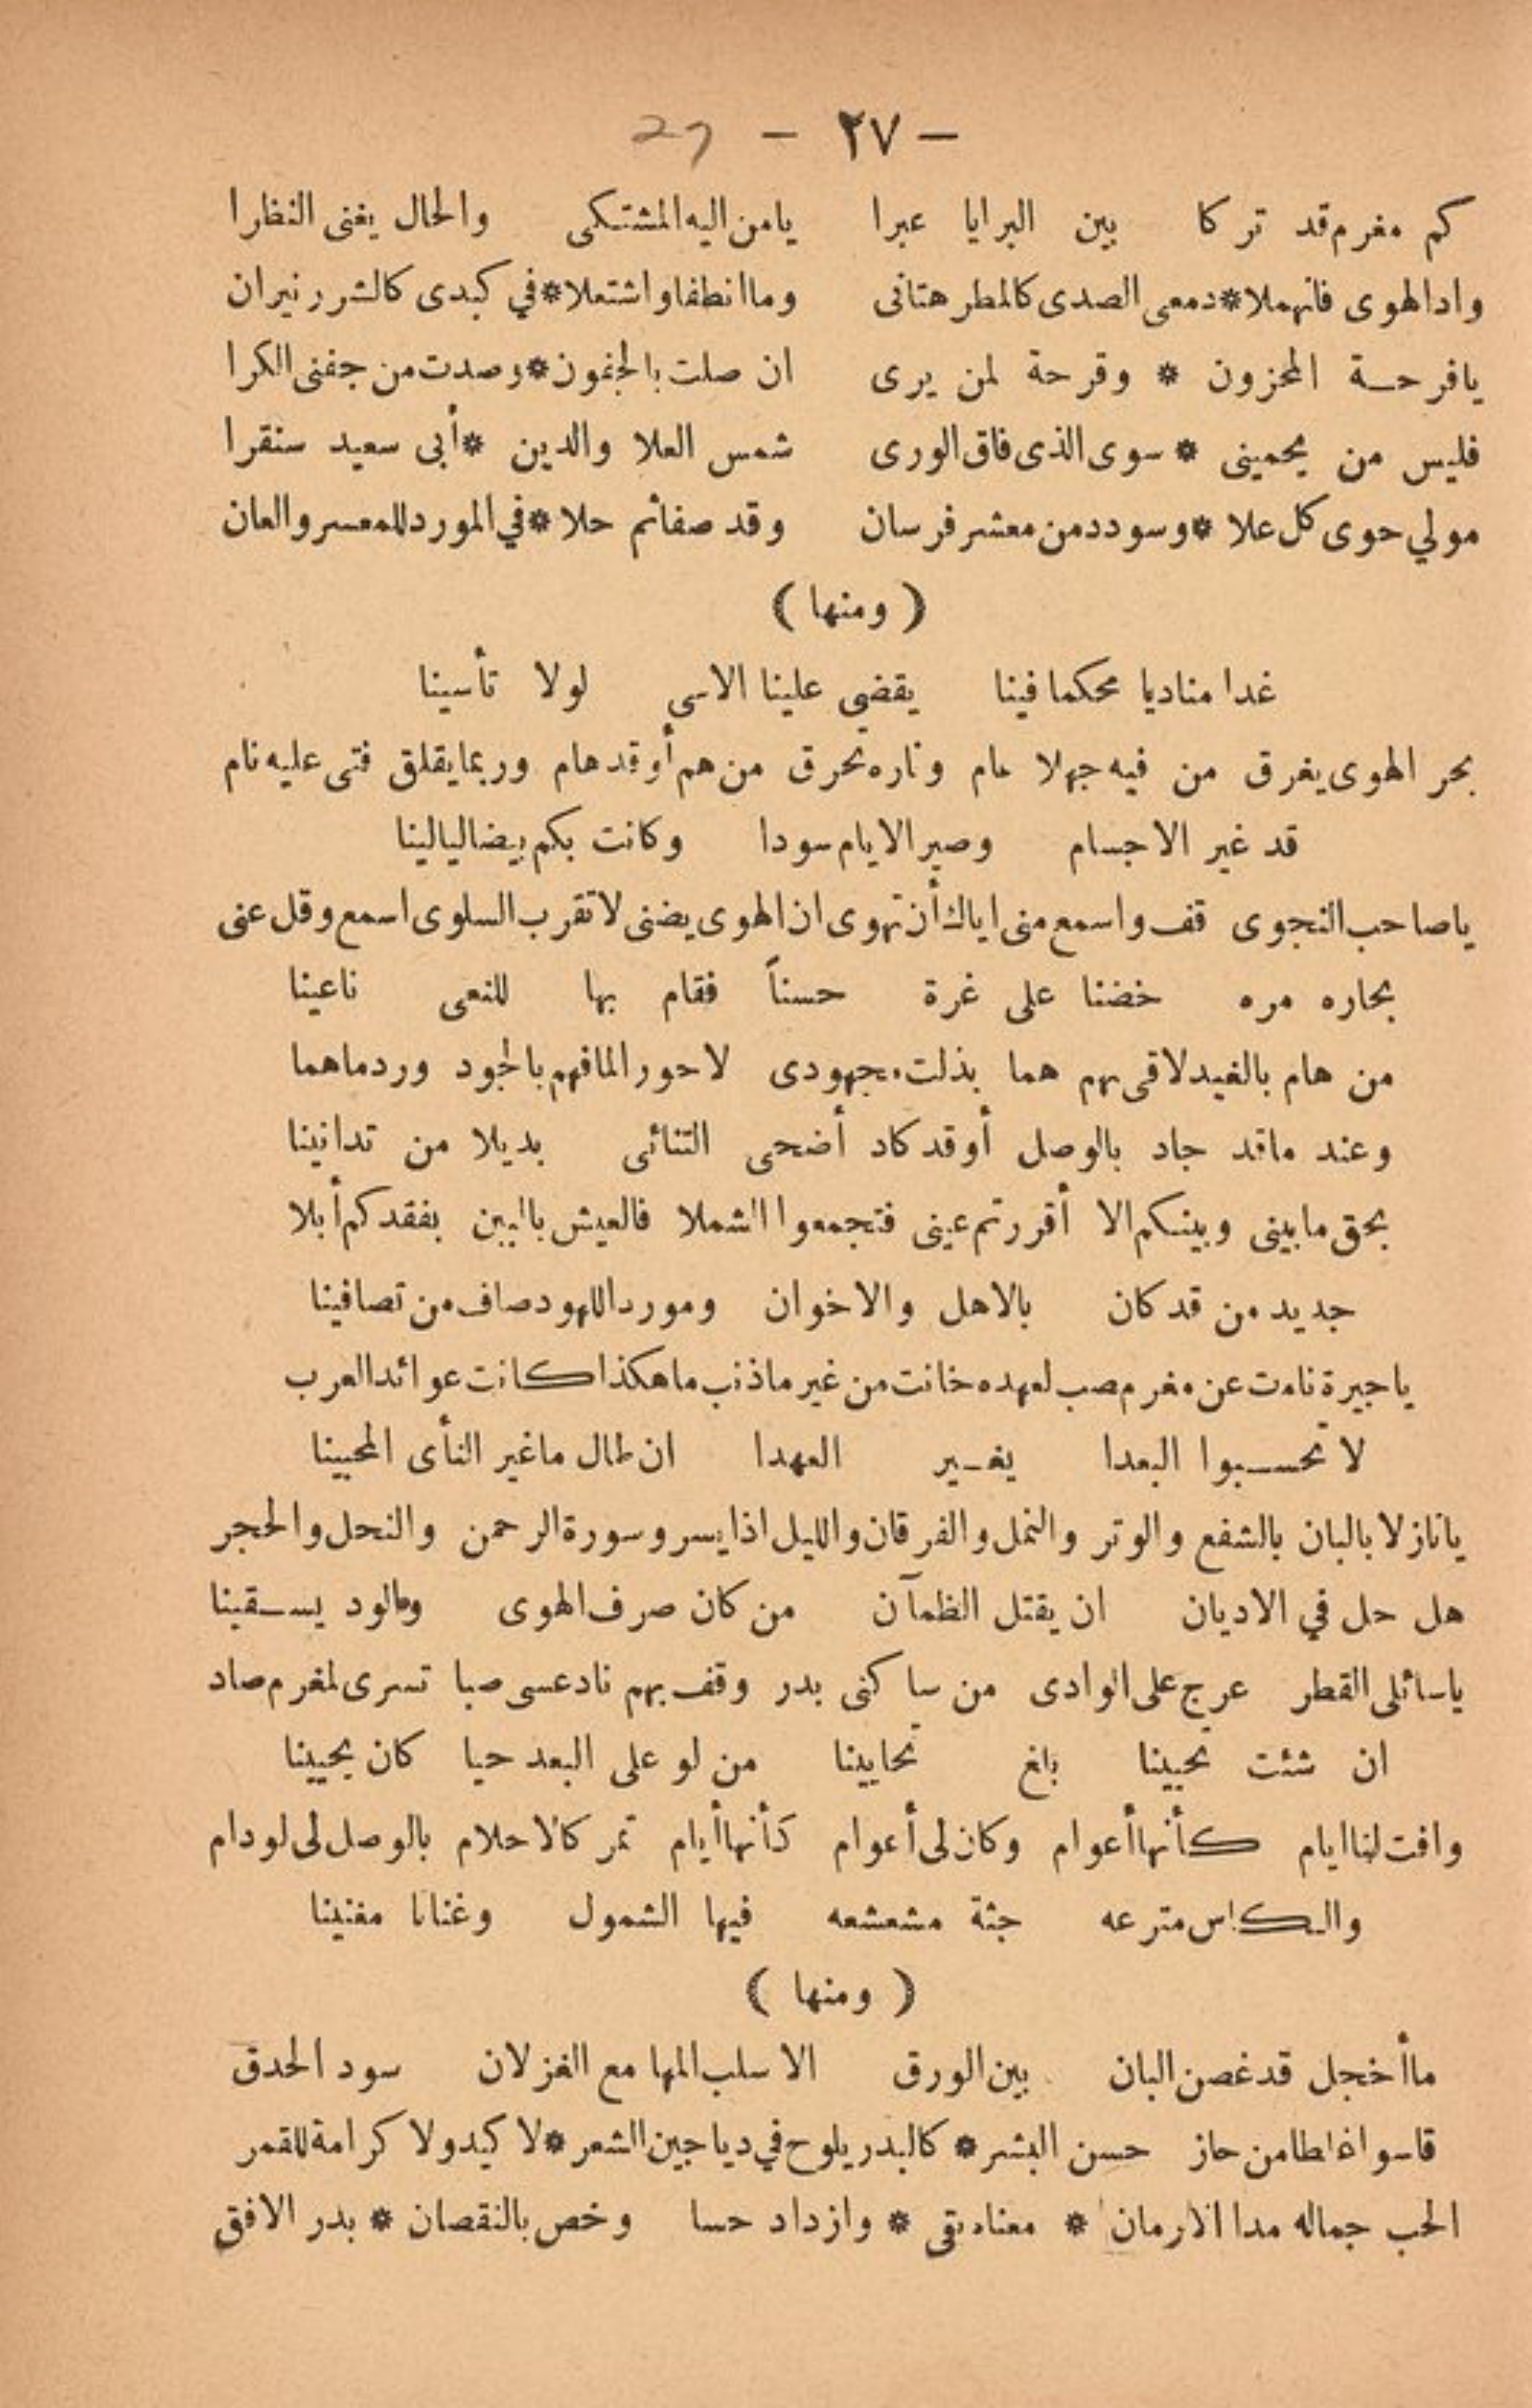 — ٢٧ — 27
كم مغرم قد تركا بين البرايا عبرا يامن اليه المشتكى والحال يغنى النظرا
وادالهوى فانهملا * دمعى الصدى كالمطر هتانى وما انطفا واشتعلا * في كبدى كالشرر نيران
يافرحة المحزون * وقرحة لمن يرى ان صلت بالجفون * وصدت من جفنى الكرا
فليس من يحمينى * سوى الذى فاق الورى شمس العلا والدين * أبى سعيد سنقرا
مولي حوى كل علا * وسودد من معشر فرسان وقد صفا ثم حلا * في المورد للمعسر والعان
( ومنها )
غدا مناديا محكما فينا يقضي علينا الاسى لولا تأسينا
بحر الهوى يغرق من فيه جهلا عام وناره تحرق من هم أوقد هام وربما يقلق فتى عليه نام
قد غير الاجسام وصير الايام سودا وكانت بكم بيضا ليالينا
ياصاحب النجوى قف واسمع منى اياك أن تهوى ان الهوى يضنى لا تقرب السلوى اسمع وقل عنى
بحاره مره خضنا على غرة حسناً فقام بها للنعى ناعينا
من هام بالغيد لاقى بهم هما بذلت مجهودى لاحور المافهم بالجود ورد ماهما
وعند ماقد جاد بالوصل أوقد كاد أضحى التنائى بديلا من تدانينا
بحق مابينى وبينكم الا أقررتم عينى فتجمعوا الشملا فالعيش بالبين بفقدكم أبلا
جديد من قد كان بالاهل والاخوان ومورد اللهو صاف من تصافينا
ياجيرة نامت عن مغرم صب لعهده خانت من غير ماذنب ماهكذا كانت عوائد العرب
لا تحسبوا البعدا يغير العهدا ان طال ماغير النأى المحبينا
يانازلا بالبان بالشفع والوتر والنمل والفرقان والليل اذا يسر وسورة الرحمن والنحل والحجر
هل حل في الاديان ان يقتل الظمآن من كان صرف الهوى والود يسقينا
ياسائلى القطر عرج على الوادى من ساكنى بدر وقف بهم ناد عسى صبا تسرى لمغرم صاد
ان شئت تحيينا بلغ تحايينا من لو على البعد حيا كان يحيينا
وافت لنا ايام كأنها أعوام وكان لى أعوام كأنها أيام تمر كالاحلام بالوصل لى لو دام
والكاس مترعه جثة مشعشعه فيها الشمول وغنانا مغنينا
( ومنها )
ماأخجل قد غصن البان بين الورق الا سلب المها مع الغزلان سود الحدق
قاسوا غلطا من حاز حسن البشر * كالبدر يلوح في دياجين الشعر * لا كيد ولا كرامة للقمر
الحب جماله مدا الازمان * معناه بقى * وازداد حسا وخص بالنقصان * بدر الافق